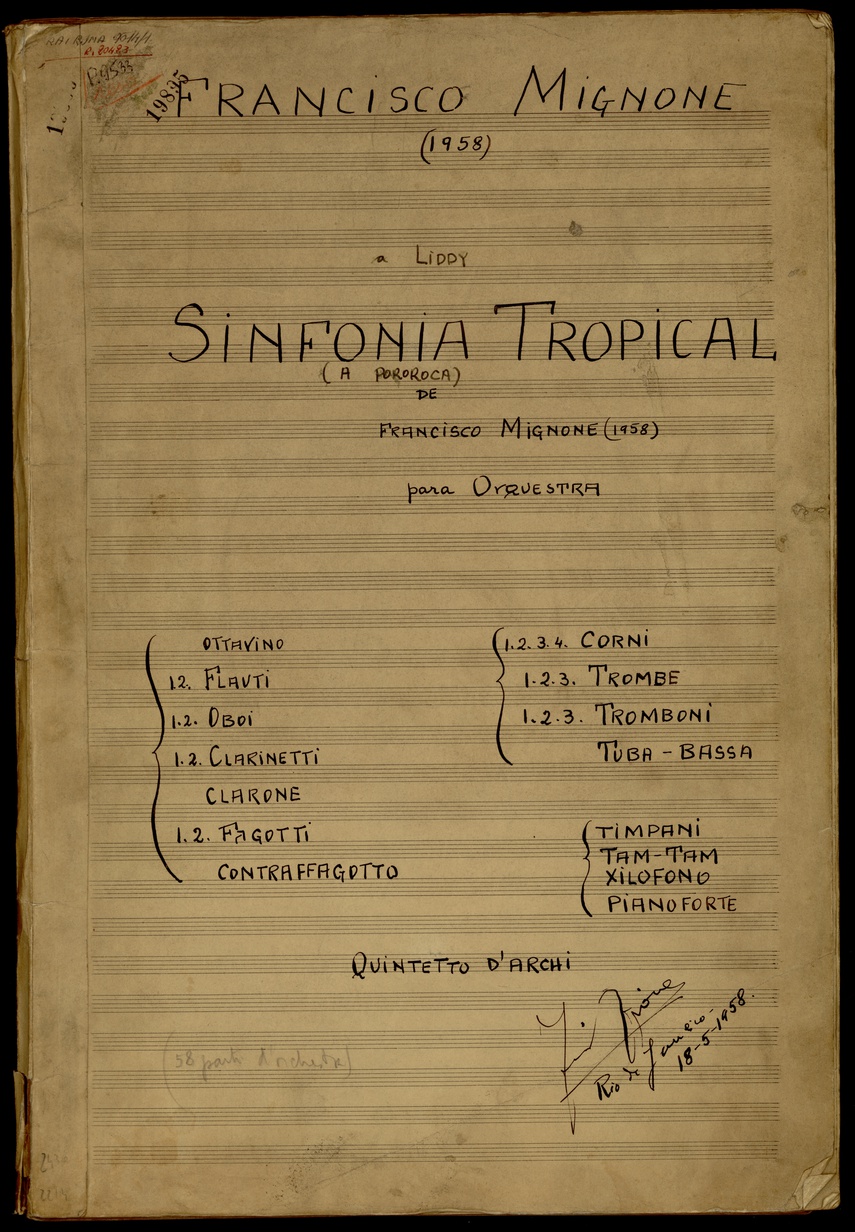 R. 20483
P. 9533
19835
FRANCISCO MIGNONE
(1958)
a LIDDY
SINFONIA TROPICAL
(A POROROCA)
DE
FRANCISCO MIGNONE (1958)
para ORQUESTRA
OTTAVINO
1.2. FLAUTI
1.2. OBOI
1.2. CLARINETTI
CLARONE
1.2. FAGOTTI
CONTRAFFAGOTTO
1.2.3.4. CORNI
1.2.3. TROMBE
1.2.3. TROMBONI
TUBA-BASSA
TIMPANI
TAM-TAM
XILOFONO
PIANOFORTE
QUINTETTO D'ARCHI
Rio de Janeiro-
18-5-1958.
(58 parti d'orchestra)